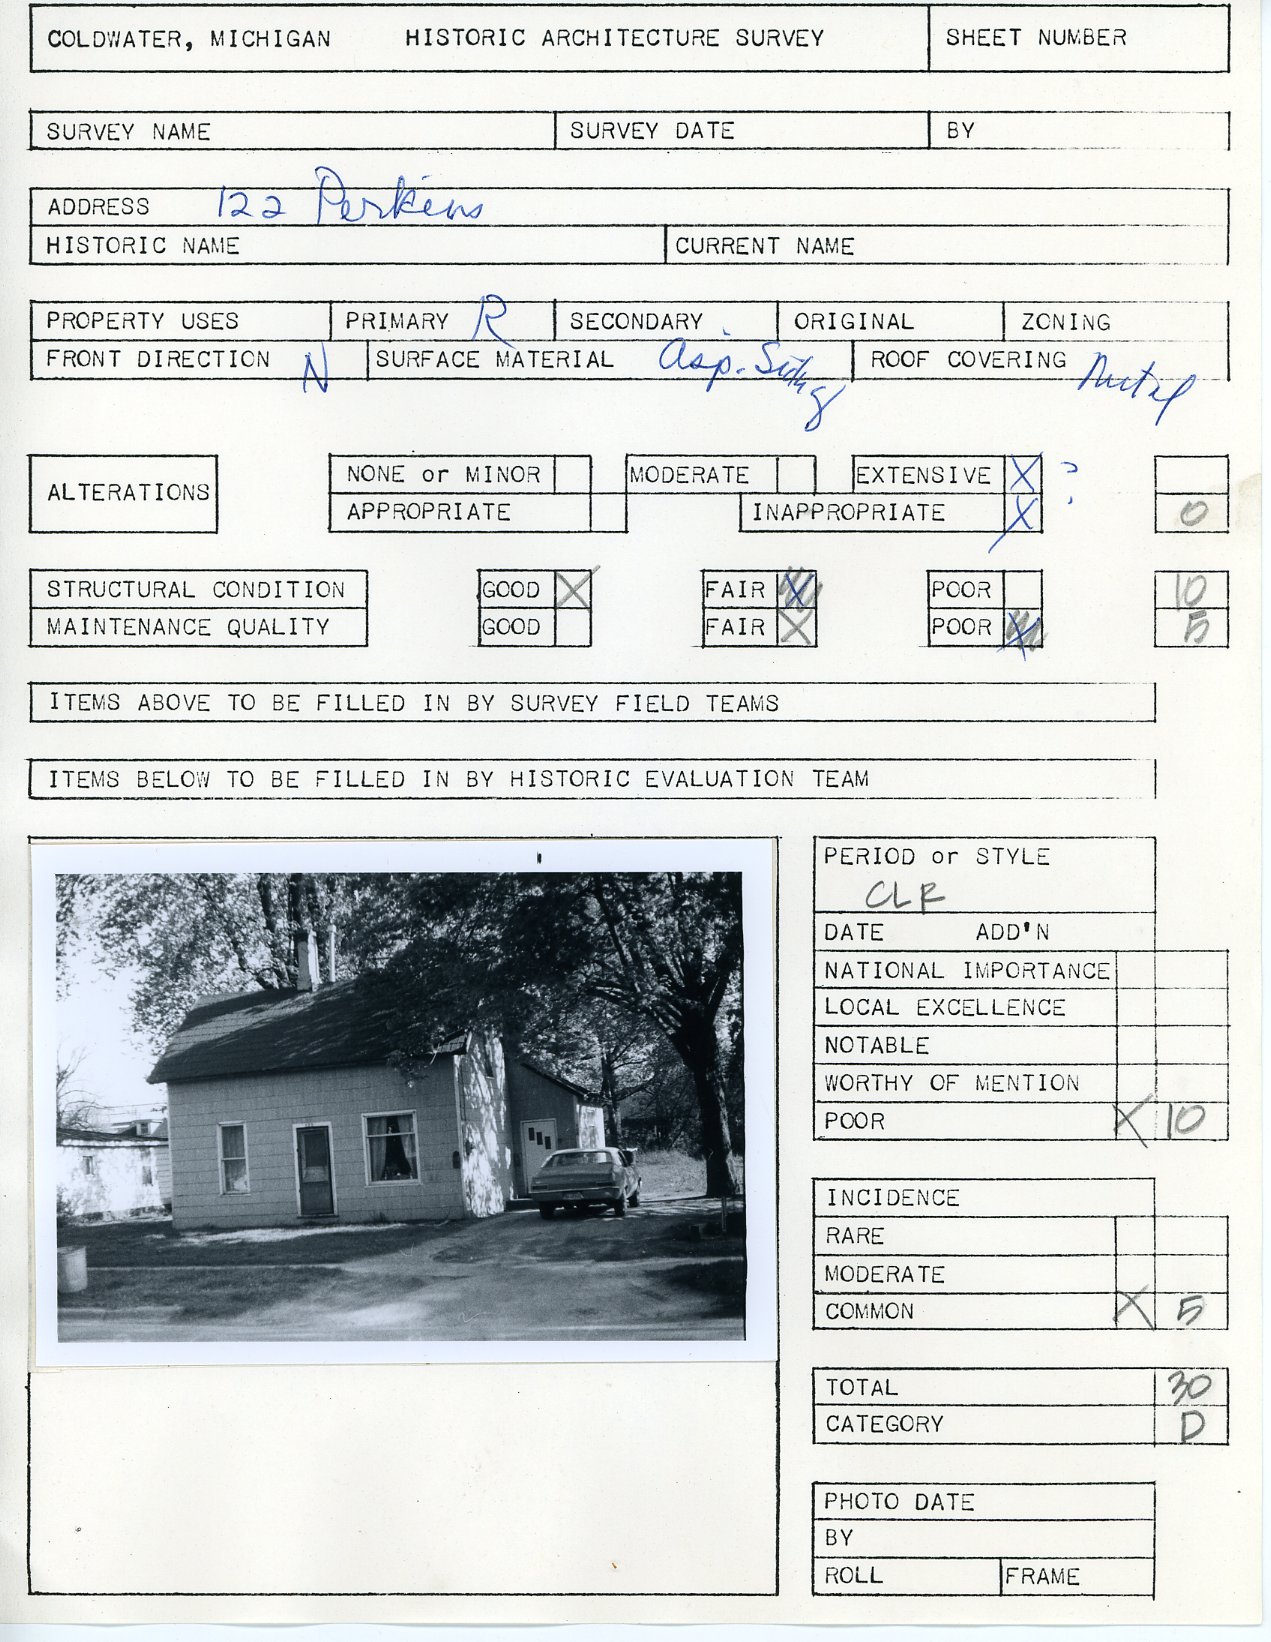 COLDWATER, MICHIGAN HISTORIC ARCHITECTURE SURVEY SHEET NUMBER
SURVEY NAME SURVEY DATE BY
ADDRESS 122 Perkins
HISTORIC NAME CURRENT NAME
PROPERTY USES PRIMARY R SECONDARY ORIGINAL ZONING
FRONT DIRECTION N SURFACE MATERIAL Asp. Siding ROOF COVERING Metal
ALTERATIONS NONE or MINOR MODERATE EXTENSIVE X ?
APPROPRIATE INAPPROPRIATE X 0
STRUCTURAL CONDITION GOOD X FAIR X POOR 10
MAINTENANCE QUALITY GOOD FAIR X POOR X 5
ITEMS ABOVE TO BE FILLED IN BY SURVEY FIELD TEAMS
ITEMS BELOW TO BE FILLED IN BY HISTORIC EVALUATION TEAM
PERIOD or STYLE
CLR
DATE ADD'N
NATIONAL IMPORTANCE
LOCAL EXCELLENCE
NOTABLE
WORTHY OF MENTION
POOR X 10
INCIDENCE
RARE
MODERATE
COMMON X 5
TOTAL 30
CATEGORY D
PHOTO DATE
BY
ROLL FRAME